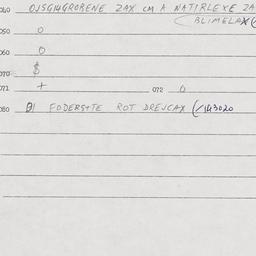 040 OJSG14GROBENE ZAX CM A NATIRLEXE ZA
BLIMELAX(
050 0
060 0
070 $
071 + 072 0
080 01 FODERS+TE ROT DREJCAX (/143020